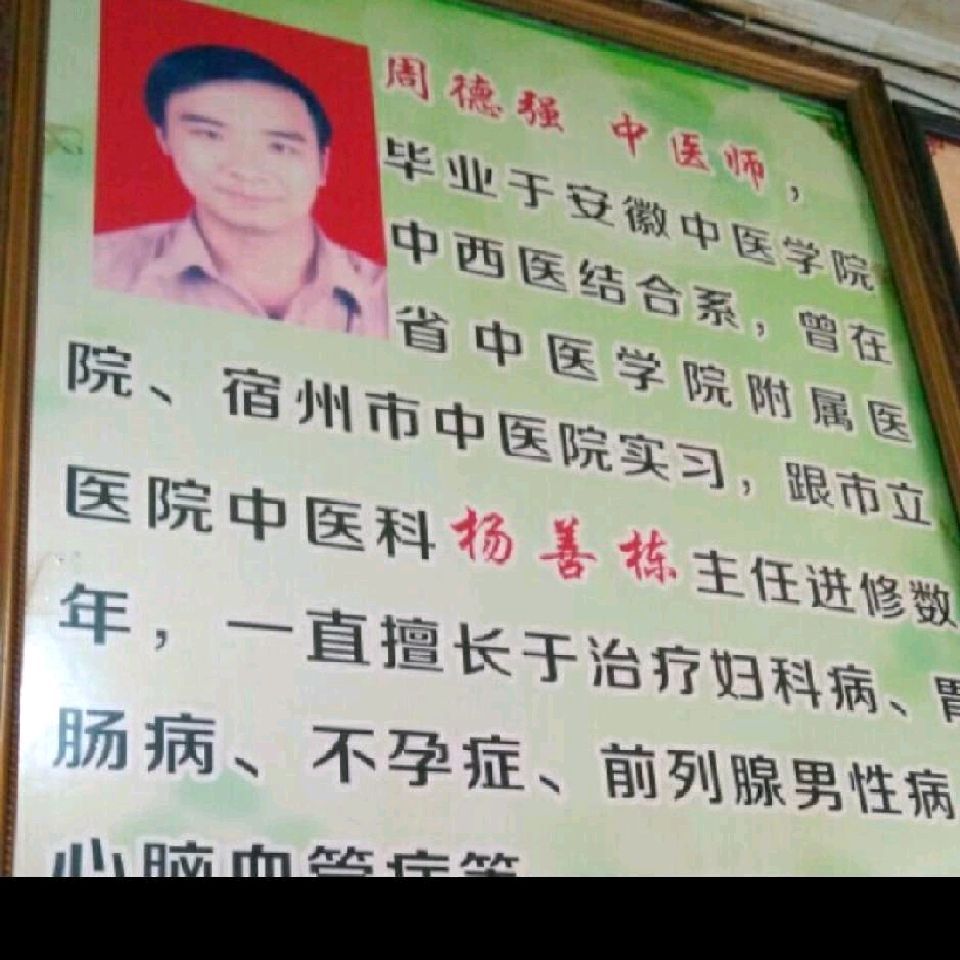 周德强 中医师，
毕业于安徽中医学院
中西医结合系，曾在
省中医学院附属医
院、宿州市中医院实习，跟市立
医院中医科杨善栋主任进修数
年，一直擅长于治疗妇科病、胃
肠病、不孕症、前列腺男性病
心脑血管病等